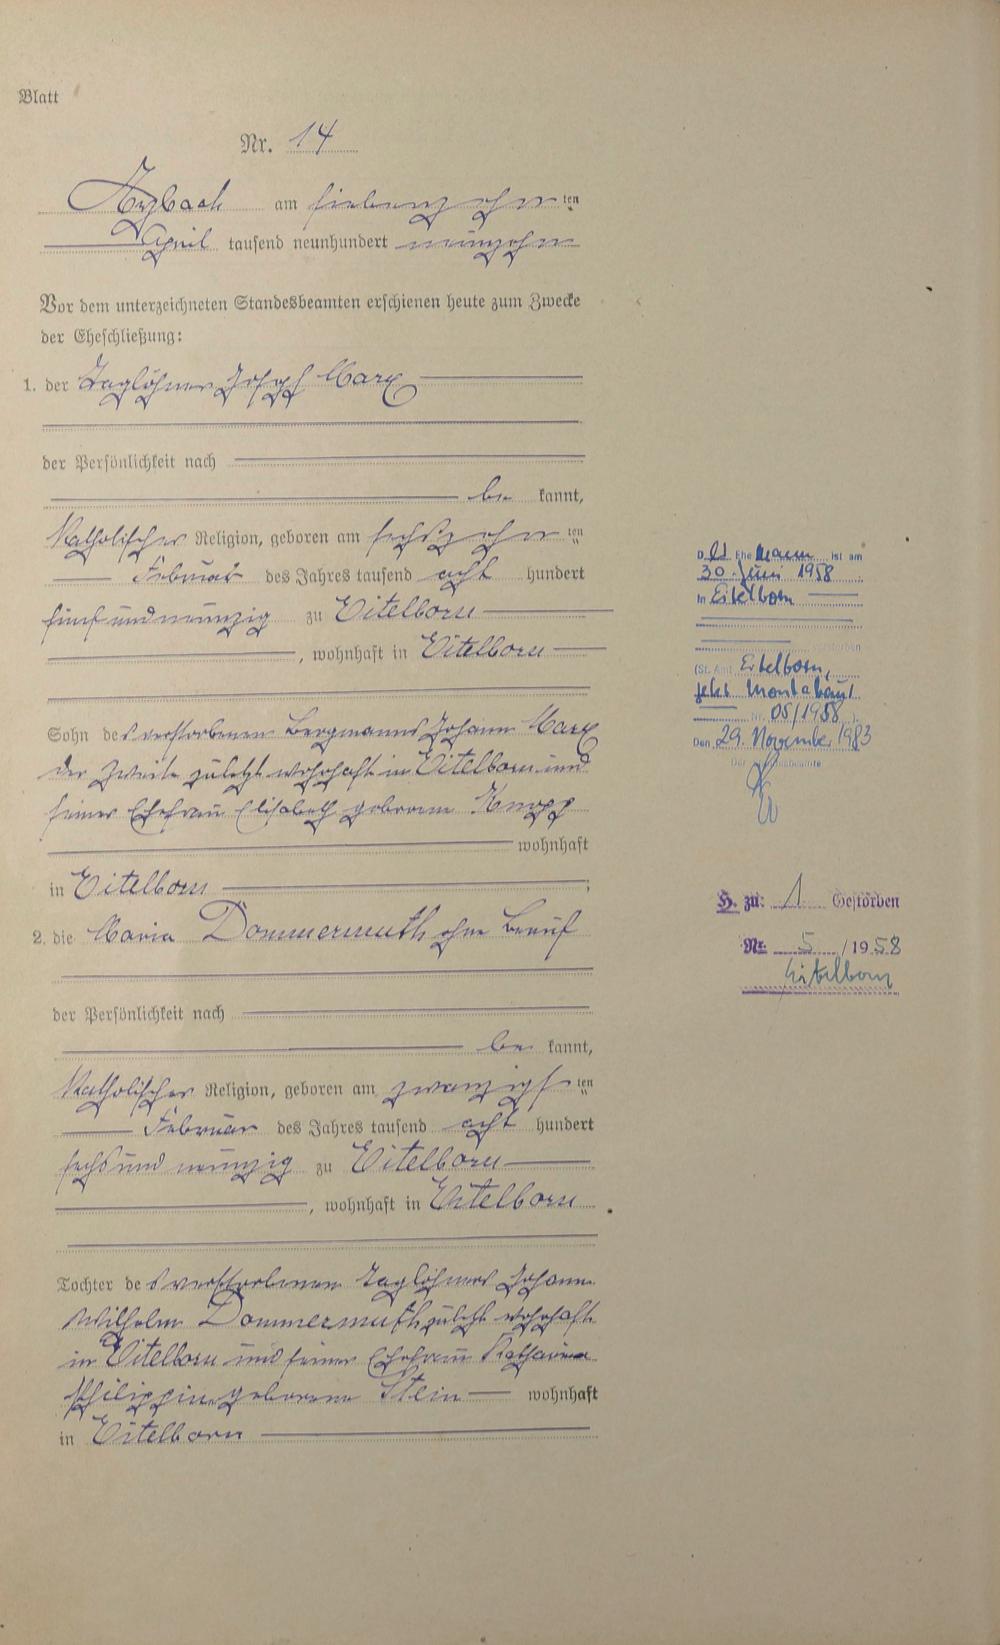 Blatt
Nr. 14
Arzbach am siebenzehnten
April tausend neunhundert neunzehn
Vor dem unterzeichneten Standesbeamten erschienen heute zum Zwecke
der Eheschließung:
1. der Taglöhner Joseph Marx
der Persönlichkeit nach
be kannt,
Katholischer Religion, geboren am sechszehnten
Februar des Jahres tausend acht hundert
fünfundneunzig zu Eitelborn
, wohnhaft in Eitelborn
Sohn des verstorbenen Bergmanns Johann Marx
der Zweite zuletzt wohnhaft in Eitelborn und
seiner Ehefrau Elisabeth geborene Knopp
wohnhaft
in Eitelborn ;
2. die Maria Dommermuth ohne Beruf
der Persönlichkeit nach
be kannt,
Katholischer Religion, geboren am zwanzigsten
Februar des Jahres tausend acht hundert
sechsundneunzig zu Eitelborn
, wohnhaft in Eitelborn
Tochter des verstorbenen Taglöhners Johann
Wilhelm Dommermuth zuletzt wohnhaft
in Eitelborn und seiner Ehefrau Katharina
Philippine geborene Stein wohnhaft
in Eitelborn
Der Ehemann ist am
30. Juni 1958
in Eitelborn
verstorben
(St. Amt Eitelborn,
jetzt Montabaur
Nr. 05/1958 ).
Den 29. November 1983
Der Standesbeamte
H. zu: 1 Gestorben
Nr. 5 /1958
Eitelborn